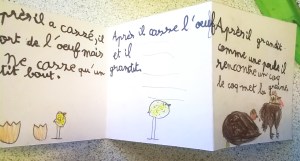 Après il a cassé, il
sort de l'oeuf mais
Ne casse qu'un
petit bout.
Après il casse l'oeuf
et il
grandit.
Après il grandit
comme une poule il
rencontre un coq
le coq met la graine